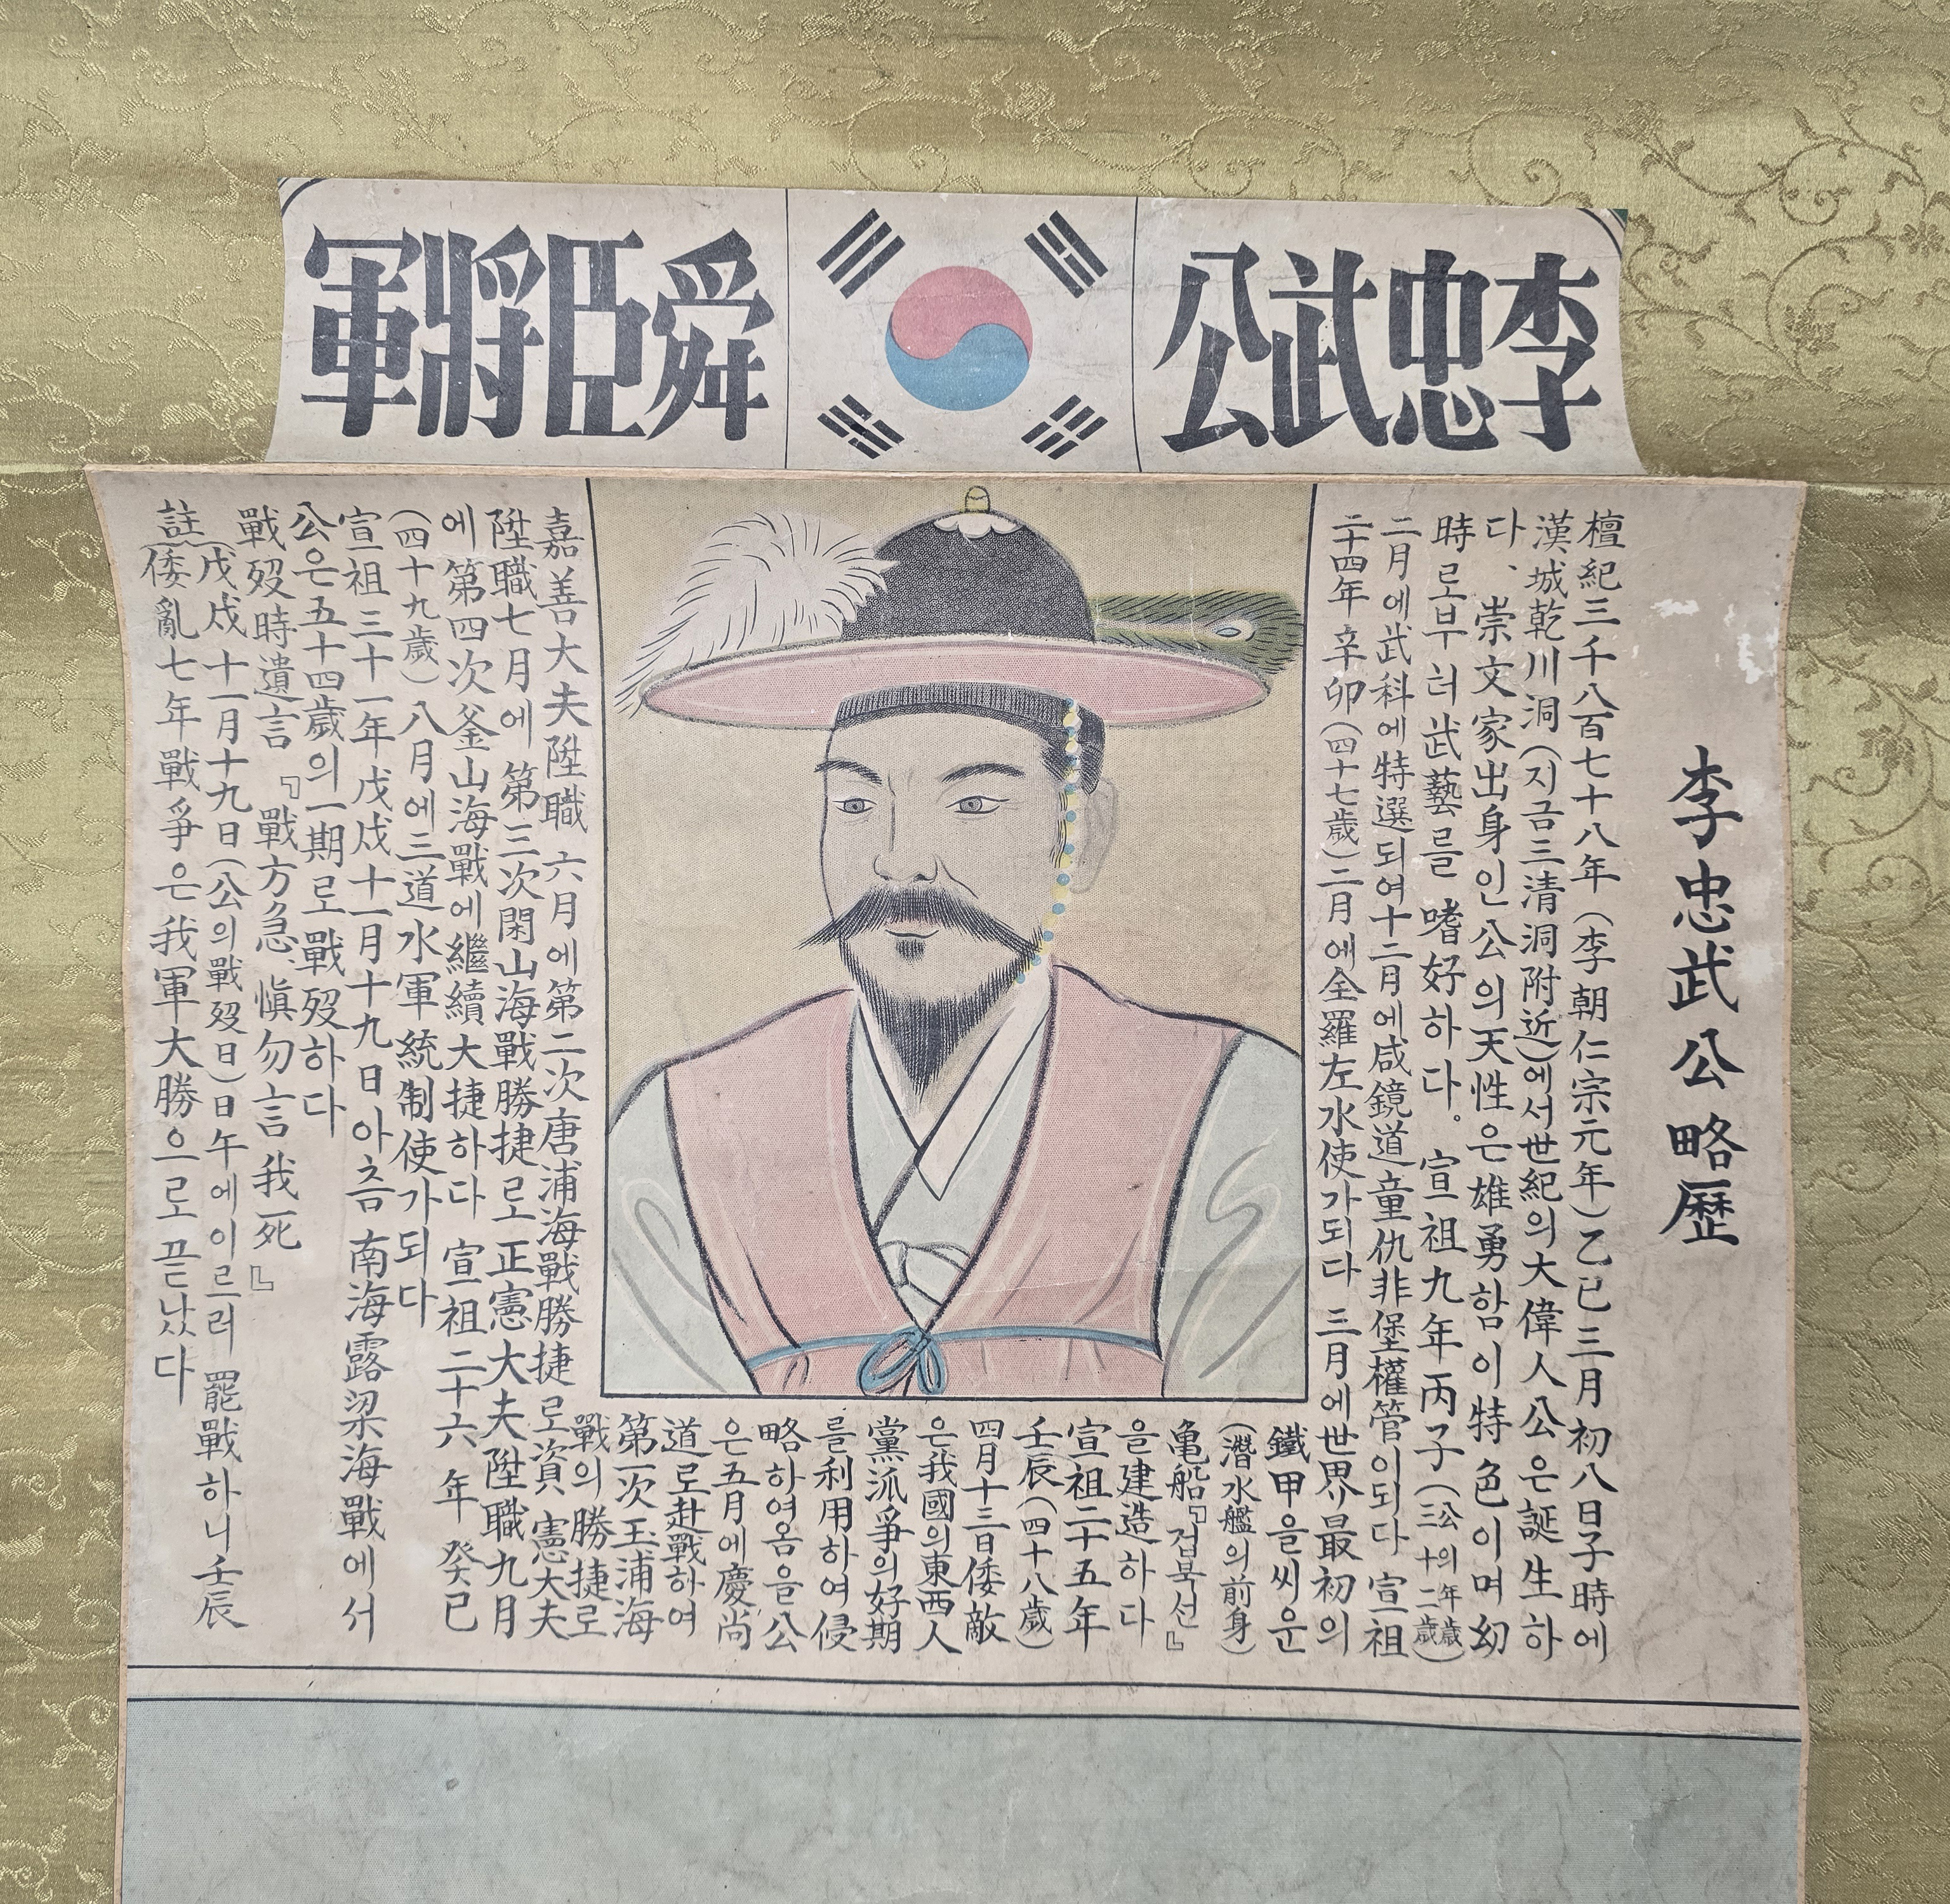 李忠武公
舜臣將軍
李忠武公略歷
檀紀三千八百七十八年（李朝仁宗元年）乙巳三月初八日子時에
漢城乾川洞（지금三清洞附近）에서世紀의大偉人公은誕生하
다、崇文家出身인公의天性은雄勇함이特色이며幼
時로부터武藝를嗜好하다。宣祖九年丙子（公의年歲三十二歲）
二月에武科에特選되여十二月에咸鏡道童仇非堡權管이되다 宣祖
二十四年辛卯（四十七歲）二月에全羅左水使가되다 三月에世界最初의
鐵甲을씨운
（潛水艦의前身）
亀船『거북선』
을建造하다
宣祖二十五年
壬辰（四十八歲）
四月十三日倭敵
은我國의東西人
黨派爭의好期
를利用하여侵
略하여옴을公
은五月에慶尚
道로赴戰하여
第一次玉浦海
戰의勝捷로
嘉善大夫陞職 六月에第二次唐浦海戰勝捷로資憲大夫
陞職七月에第三次閑山海戰勝捷로正憲大夫陞職九月
에第四次釜山海戰에繼續大捷하다 宣祖二十六年 癸巳
（四十九歲）八月에三道水軍統制使가되다
宣祖三十一年戊戌十一月十九日아츰南海露梁海戰에서
公은五十四歲의一期로戰歿하다
戰歿時遺言『戰方急、愼勿言我死』
（戊戌十一月十九日（公의戰歿日）日午에이르러罷戰하니壬辰
註（倭亂七年戰爭은我軍大勝으로끝났다